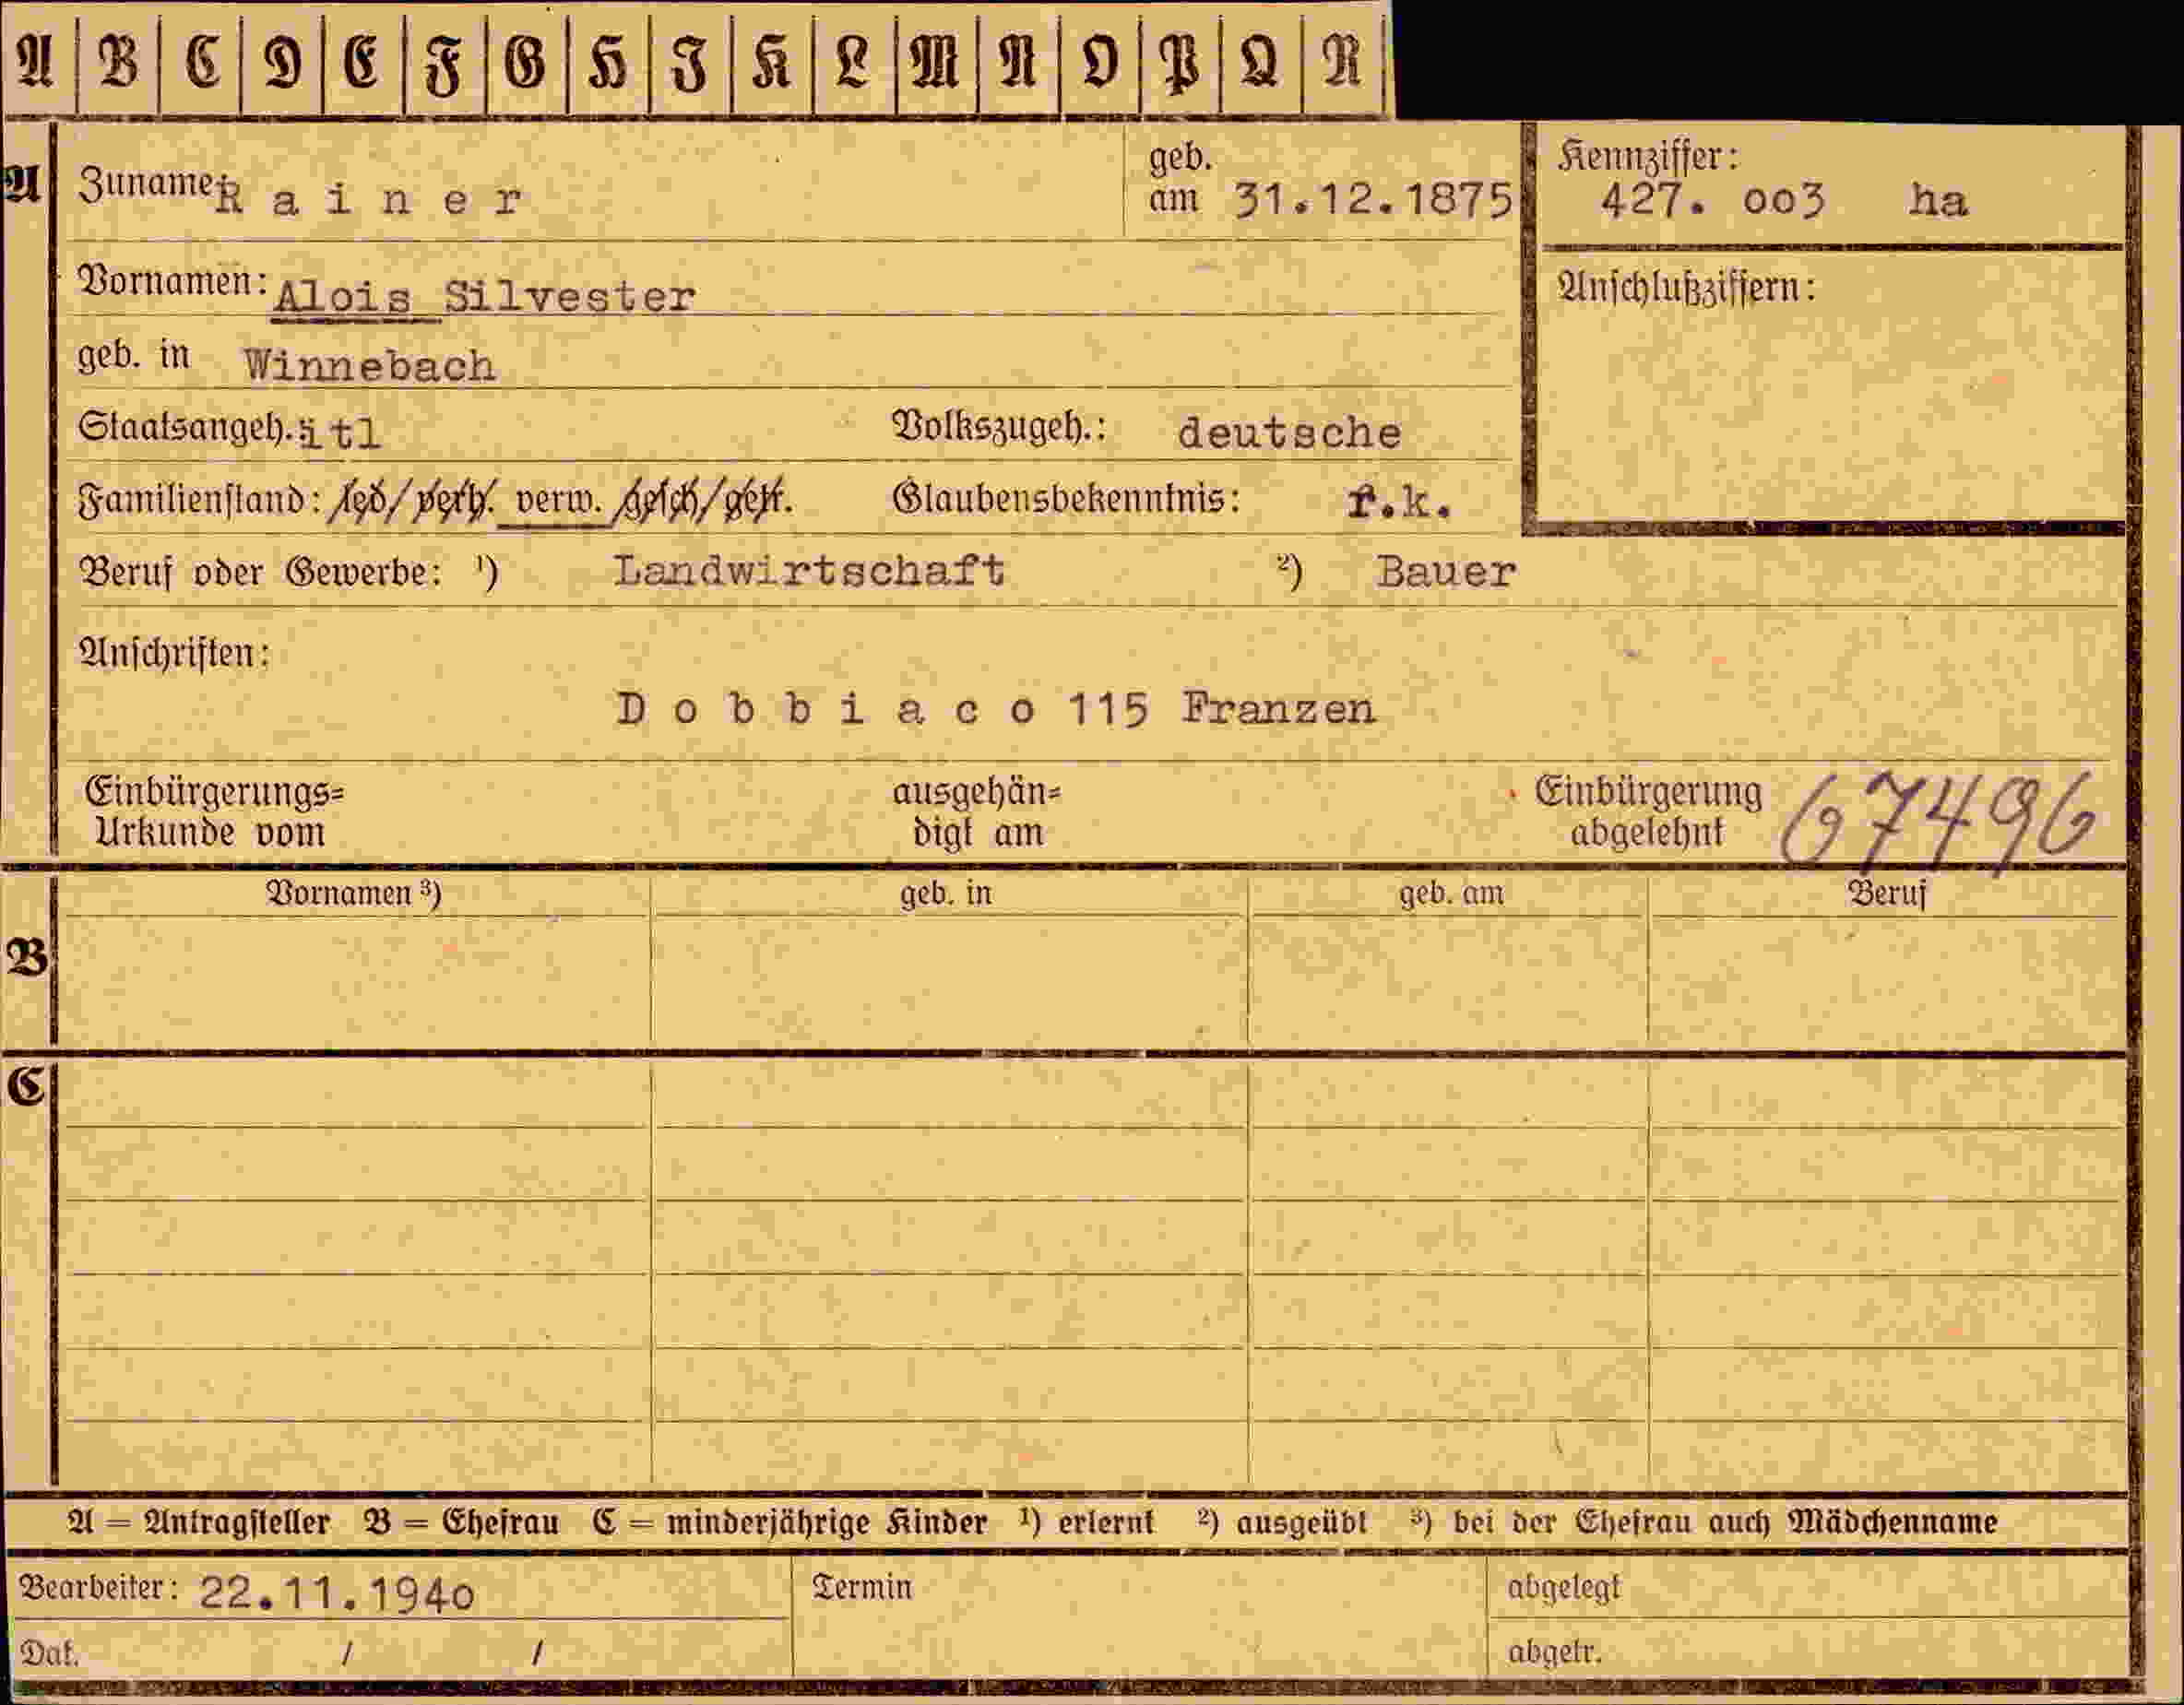 A B C D E F G H I K L M N O P Q R
A Zuname: Rainer geb. am 31.12.1875 Kennziffer: 427. oo3 ha
Vornamen: Alois Silvester Anschlußziffern:
geb. in Winnebach
Staatsangeh. itl Volkszugeh.: deutsche
Familienstand: led/verh. verw. gesch/getr. Glaubensbekenntnis: r.k.
Beruf oder Gewerbe: ¹) Landwirtschaft ²) Bauer
Anschriften:
Dobbiaco 115 Franzen
Einbürgerungs= ausgehän= Einbürgerung 67496
Urkunde vom digt am abgelehnt
Vornamen ³) geb. in geb. am Beruf
B
C
A = Antragsteller B = Ehefrau C = minderjährige Kinder ¹) erlernt ²) ausgeübt ³) bei der Ehefrau auch Mädchenname
Bearbeiter: 22.11.194o Termin abgelegt
Dat. / / abgetr.